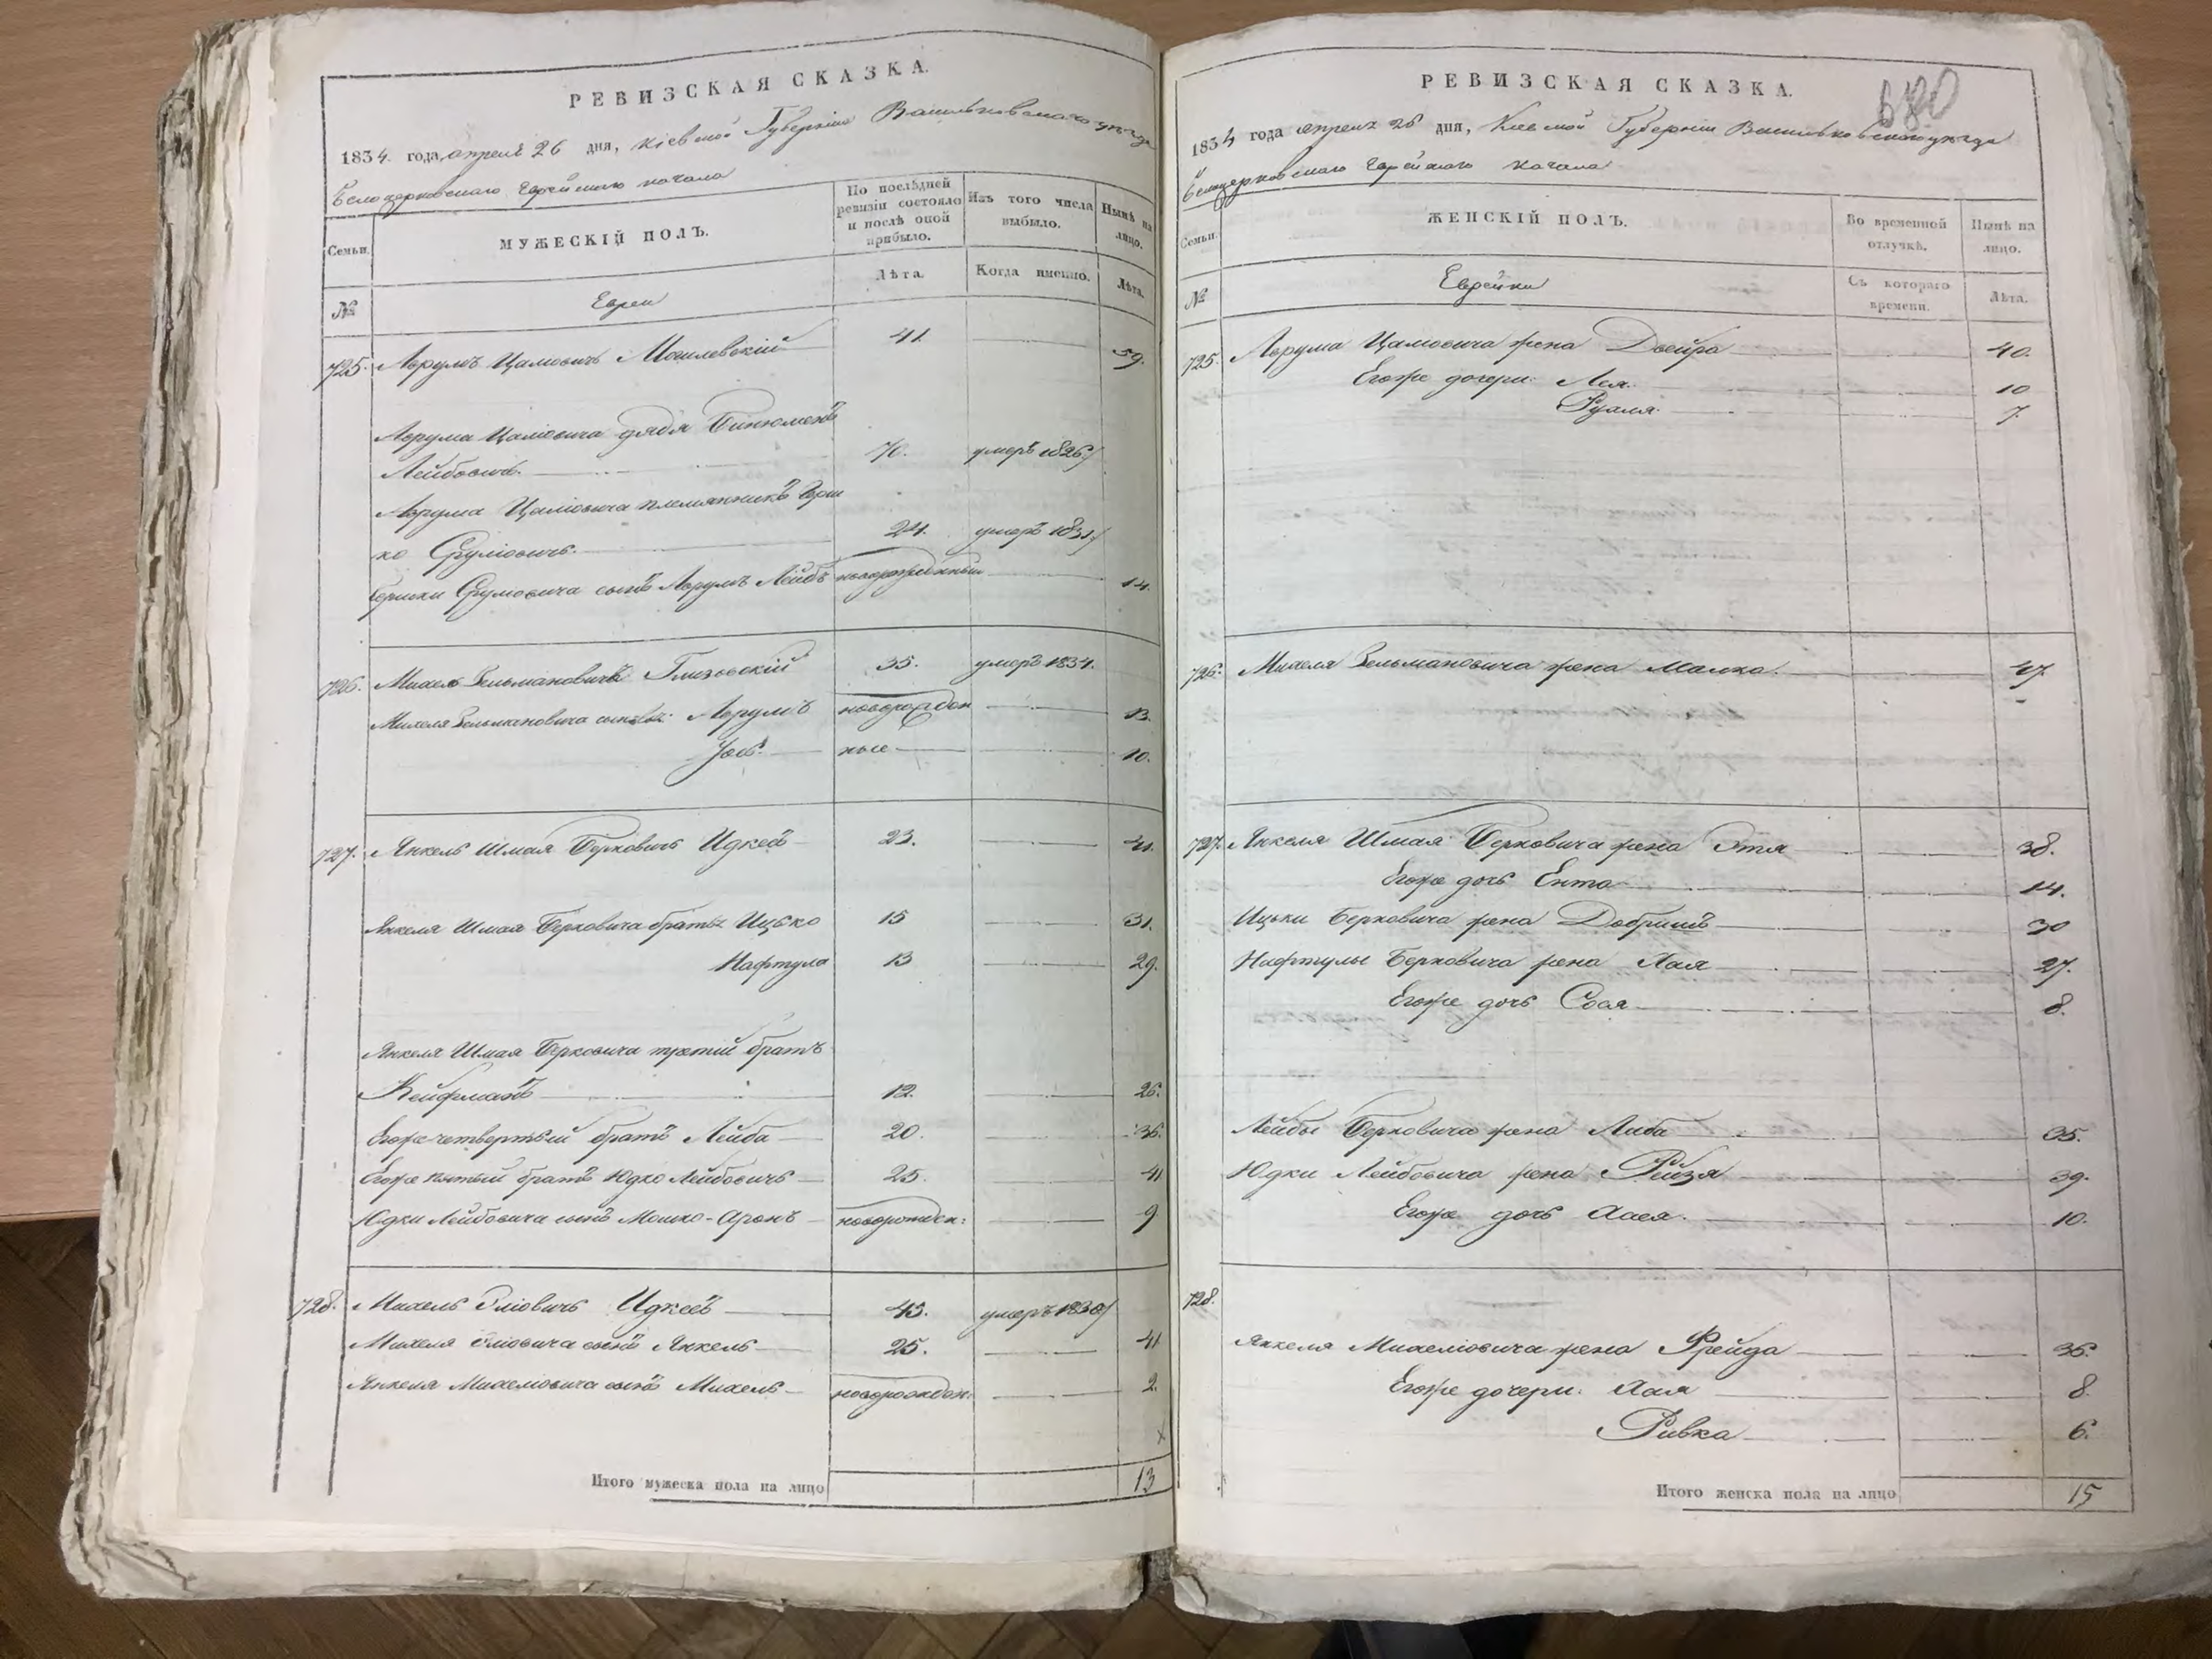 РЕВИЗСКАЯ СКАЗКА.
1834. года апреля 26 дня, Кіевской Губерніи Васильковскаго уезда
Белоцерковскаго Еврейскаго кагала
Семьи.
МУЖЕСКІЙ ПОЛЪ.
По послѣдней ревизіи состояло и послѣ оной прибыло.
Изъ того числа выбыло.
Нынѣ на лицо.
№
Евреи
Лѣта.
Когда именно.
Лѣта.
725. Аврумъ Цаліовичъ Могилевскій 41. 59.
Аврума Цаліовича дядя Бинюменъ
Лейбовичъ. 70. умеръ 1826/
Аврума Цаліовича племянникъ Герш
ко Сруліовичъ. 24. умеръ 1831/
Гершки Сруліовича сынъ Аврумъ Лейбъ новорожденный 14.
726. Михель Зельмановичъ 35. умеръ 1834.
Михеля Зельмановича сыновья: Аврумъ новорожден 13.
Іосъ. ные 10.
727. Янкель Шмая Берковичъ Идкевъ 23. 41.
Янкеля Шмая Берковича братья Ицько 15 31.
Нафтула 13 29.
Янкеля Шмая Берковича третій братъ
Кейфманъ 12. 26.
Егоже четвертый братъ Лейба 20. 36.
Егоже пятый братъ Юдко Лейбовичъ 25. 41
Юдки Лейбовича сынъ Мошко-Аронъ новорожден: 9
728. Михель Эліовичъ Идкевъ 45. умеръ 1830/
Михеля Эліовича сынъ Янкель 25. 41
Янкеля Михеліовича сынъ Михель новорожден: 2.
x
Итого мужеска пола на лицо 13
680
РЕВИЗСКАЯ СКАЗКА.
1834 года апреля 26 дня, Кіевской Губерніи Васильковскаго уезда
Белоцерковскаго Еврейскаго кагала
Семьи.
ЖЕНСКІЙ ПОЛЪ.
Во временной отлучкѣ.
Нынѣ на лицо.
№
Еврейки
Съ котораго времени.
Лѣта.
725. Аврума Цаліовича жена Двейра 40.
Егоже дочери: Лея. 10
Рухля. 7.
726. Михеля Зельмановича жена Малка. 47.
727. Янкеля Шмая Берковича жена Этя 38.
Егоже дочь Ента 14.
Ицьки Берковича жена Добришъ 30
Нафтулы Берковича жена Хая 27.
Егоже дочь Сося 8.
Лейбы Берковича жена Либа 35.
Юдки Лейбовича жена Рейзя 39.
Егоже дочь Хася. 10.
728.
Янкеля Михеліовича жена Фрейда 36.
Егоже дочери: Хая 8.
Ривка 6.
Итого женска пола на лицо 15